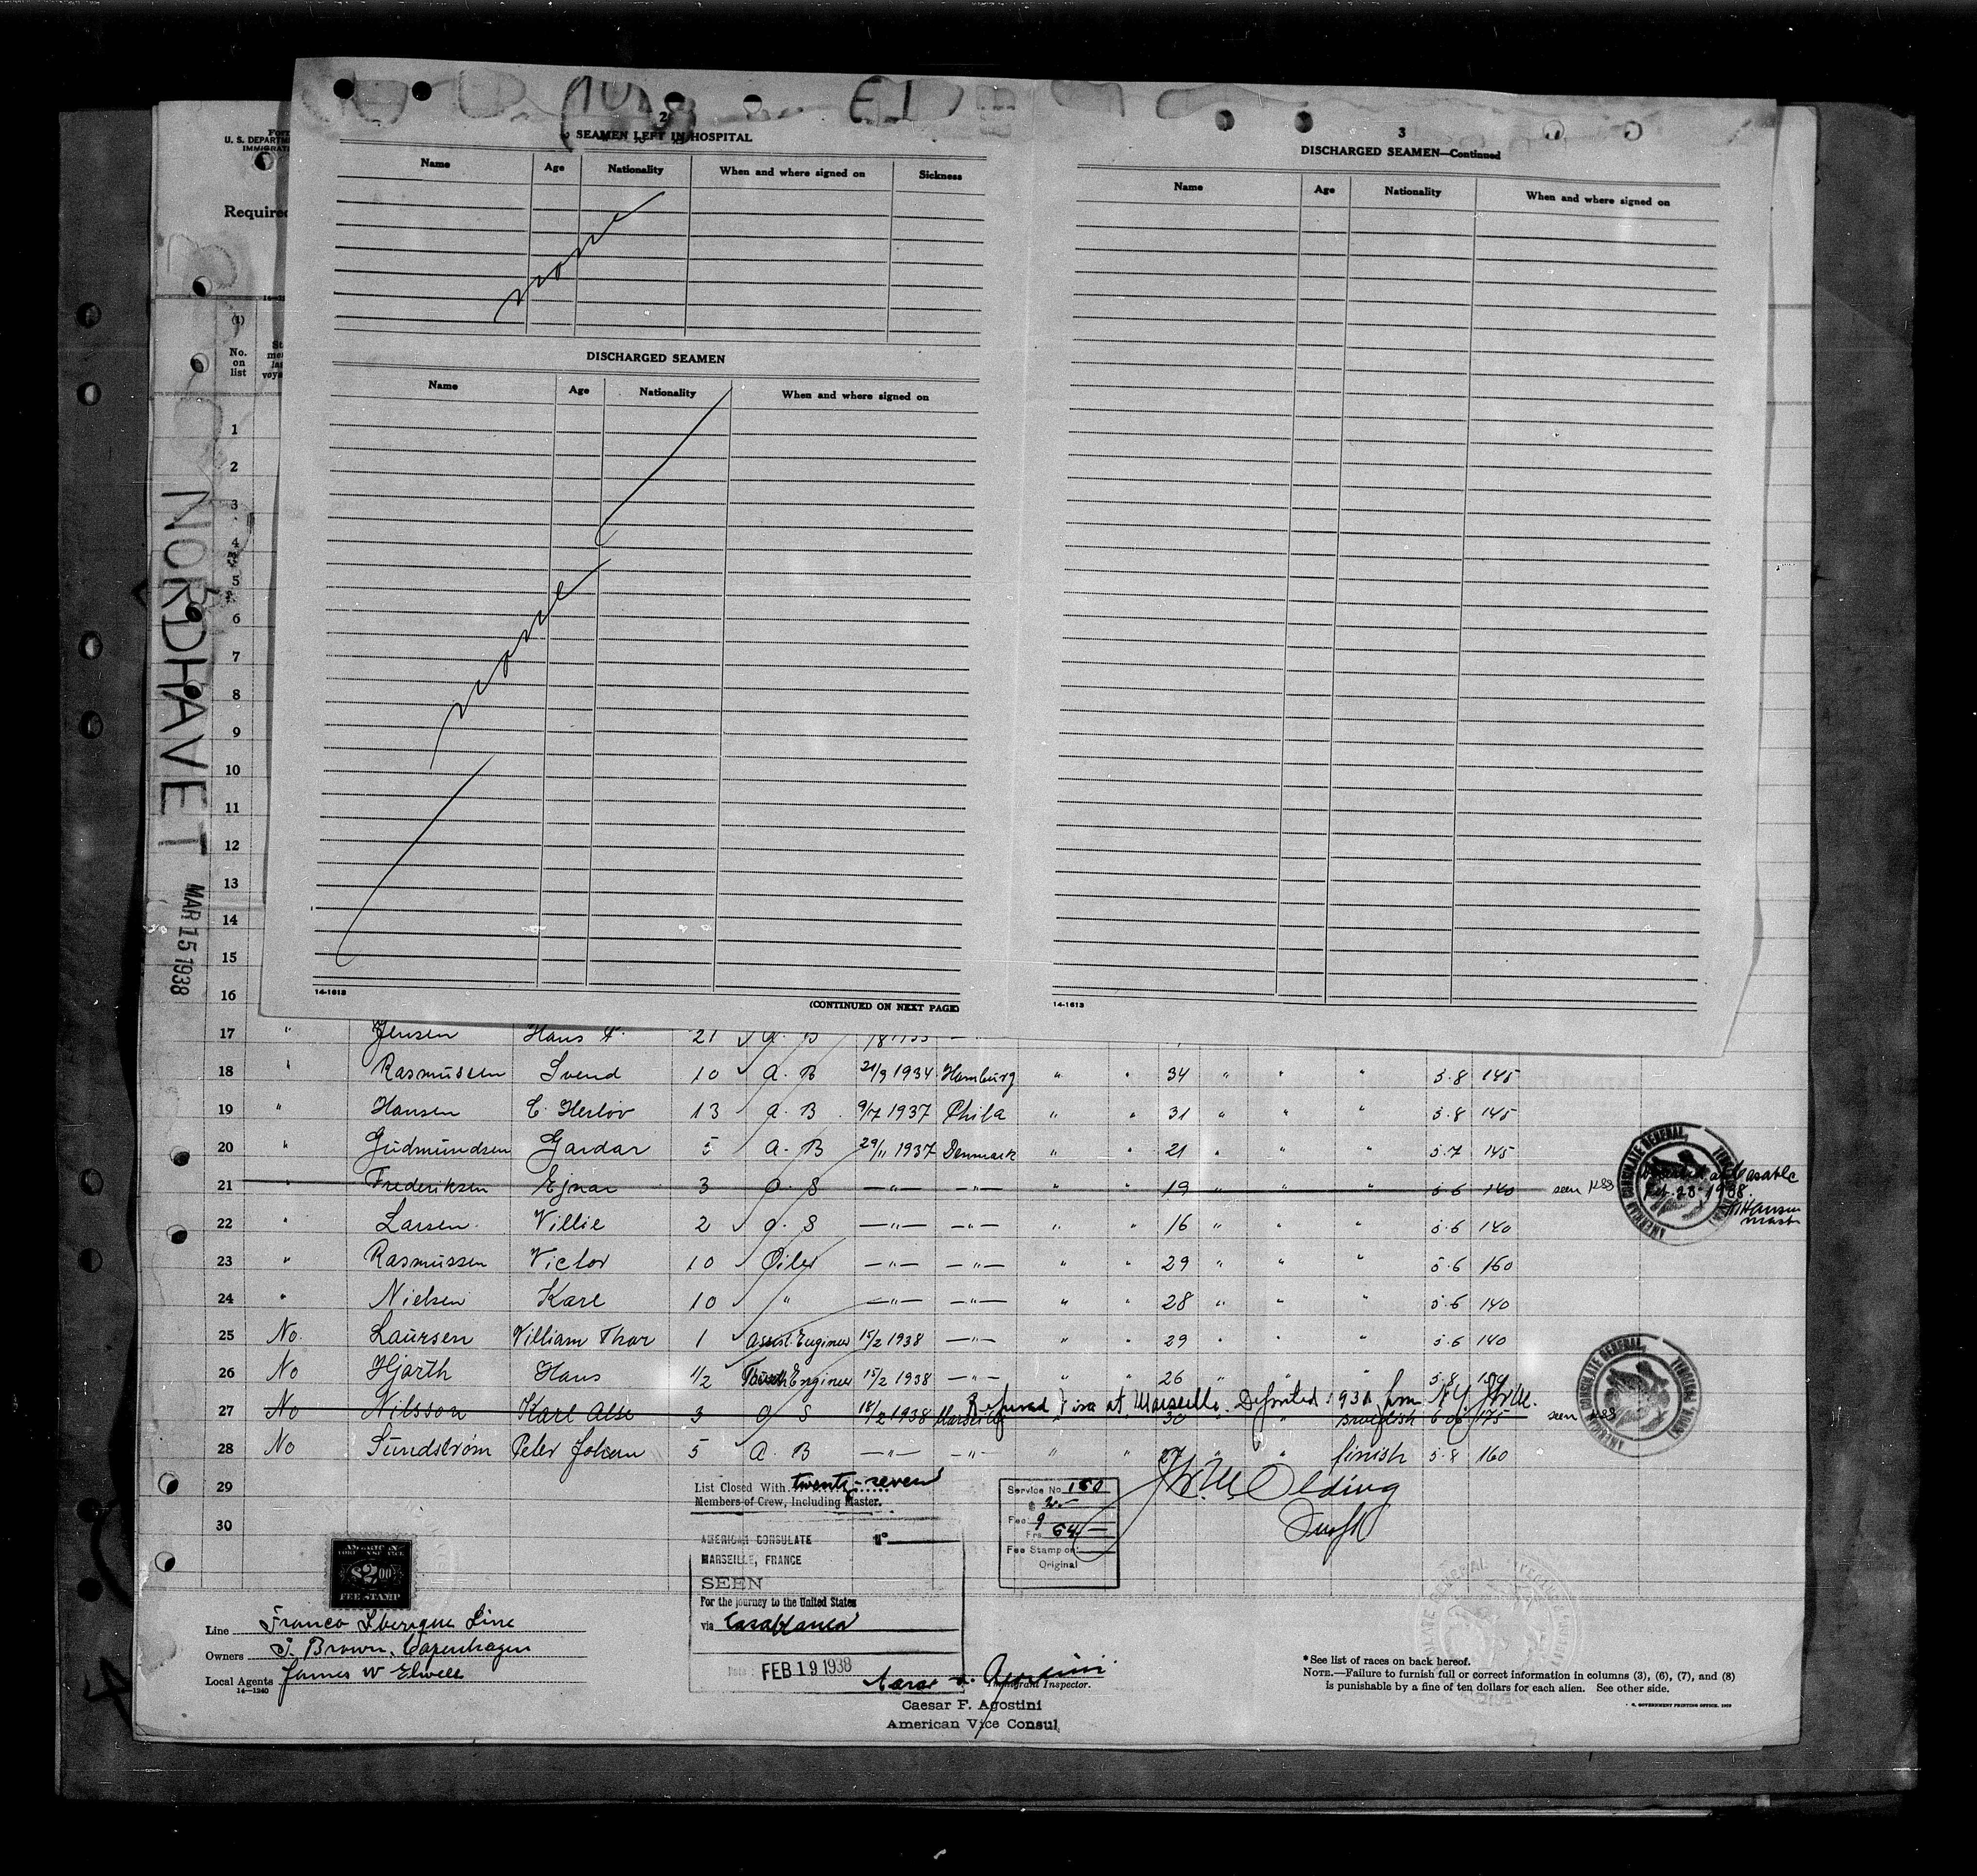 2
SEAMEN LEFT IN HOSPITAL
Name Age Nationality When and where signed on Sickness
none
DISCHARGED SEAMEN
Name Age Nationality When and where signed on
none
14-1613
(CONTINUED ON NEXT PAGE)
3
DISCHARGED SEAMEN—Continued
Name Age Nationality When and where signed on
14-1613
U. S. DEPARTM
IMMIGRATI
Required
(1)
No.
on
list
NORDHAVET
MAR 15 1938
1
2
3
4
5
6
7
8
9
10
11
12
13
14
15
16
17 " Jensen Hans 21 A. B
18 " Rasmussen Svend 10 A. B 21/9 1934 Hamburg " " 34 " " " 5.8 145
19 " Hansen C. Herlov 13 A. B. 9/7 1937 Phila " " 31 " " " 5.8 145
20 " Gudmundsen Gardar 5 A. B 29/11 1937 Denmark " " 21 " " " 5.7 145
21 " Frederiksen Ejnar 3 O. S " " " " 19 " " " 5.6 140 seen
22 " Larsen Villie 2 O. S —"— —"— " " 16 " " " 5.6 140
23 " Rasmussen Victor 10 Oiler —"— —"— " " 29 " " " 5.6 160
24 " Nielsen Karl 10 " —"— —"— " " 28 " " " 5.6 140
25 No. Laursen Villiam Thor 1 Assist. Enginer 15/2 1938 —"— " " 29 " " " 5.6 140
26 No Hjorth Hans 1/2 Enginer 15/2 1938 —"— " " 26 " " " 5.8
Refused Visa at Marseille. Deported 1931 from N.Y.
27 No Nilsson Karl 3 O S 18/2 1938 Marseille " " 30 " " swedish 175 seen
28 No Sundström Peter Johan 5 A. B —"— —"— " " 27 " " finish 5.8 160
29
30
AMERICAN CONSULATE GENERAL,
Feb. 23. 1938.
Hansen
master
AMERICAN CONSULATE GENERAL,
List Closed With twenty-seven
Members of Crew, Including Master.
AMERICAN CONSULATE
MARSEILLE, FRANCE
SEEN
For the journey to the United States
via Casablanca
Date: FEB 19 1938
Service No. 150
Fee
Frs
Fee Stamp on
Original
Olding
$2.00
FEE STAMP
Line Franco Iberique Line
Owners J. Brown, Copenhagen
Local Agents James W Elwell
14—1240
Immigrant Inspector.
Caesar F. Agostini
American Vice Consul
*See list of races on back hereof.
NOTE.—Failure to furnish full or correct information in columns (3), (6), (7), and (8)
is punishable by a fine of ten dollars for each alien. See other side.
GOVERNMENT PRINTING OFFICE